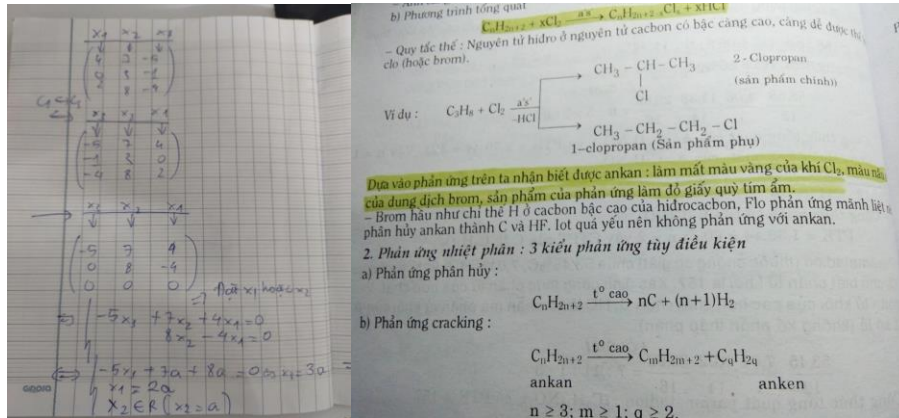 x₁ x₂ x₃
4 7 -5
0 3 -1
2 8 -4
x₃ x₂ x₁
-5 7 4
-1 3 0
-4 8 2
x₃ x₂ x₁
-5 7 4
0 8 -4
0 0 0
=> Đặt x₁ hoặc x₂
<=> -5x₃ + 7x₂ + 4x₁ = 0
8x₂ - 4x₁ = 0
x₁ = 2a
x₂ ∈ R (x₂ = a)
b) Phương trình tổng quát
CₙH₂ₙ₊₂ + xCl₂ —a's'→ CₙH₂ₙ₊₂₋ₓClₓ + xHCl
– Quy tắc thế : Nguyên tử hidro ở nguyên tử cacbon có bậc càng cao, càng dễ được thế
clo (hoặc brom).
CH₃ – CH – CH₃ 2 - Clopropan
Cl (sản phẩm chính)
Ví dụ : C₃H₈ + Cl₂ —a's' -HCl→
CH₃ – CH₂ – CH₂ – Cl
1–clopropan (Sản phẩm phụ)
Dựa vào phản ứng trên ta nhận biết được ankan : làm mất màu vàng của khí Cl₂, màu nâu
của dung dịch brom, sản phẩm của phản ứng làm đỏ giấy quỳ tím ẩm.
– Brom hầu như chỉ thế H ở cacbon bậc cao của hiđrocacbon, Flo phản ứng mãnh liệt
phân hủy ankan thành C và HF. Iot quá yếu nên không phản ứng với ankan.
2. Phản ứng nhiệt phân : 3 kiểu phản ứng tùy điều kiện
a) Phản ứng phân hủy :
CₙH₂ₙ₊₂ —t° cao→ nC + (n+1)H₂
b) Phản ứng cracking :
CₙH₂ₙ₊₂ —t° cao→ CₘH₂ₘ₊₂ + C_qH₂_q
ankan anken
n ≥ 3; m ≥ 1; q ≥ 2.